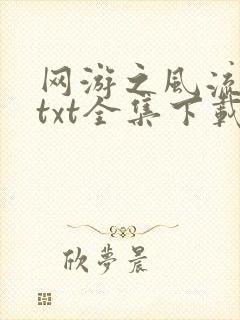 网游之风流
txt全集下载
欣梦晨